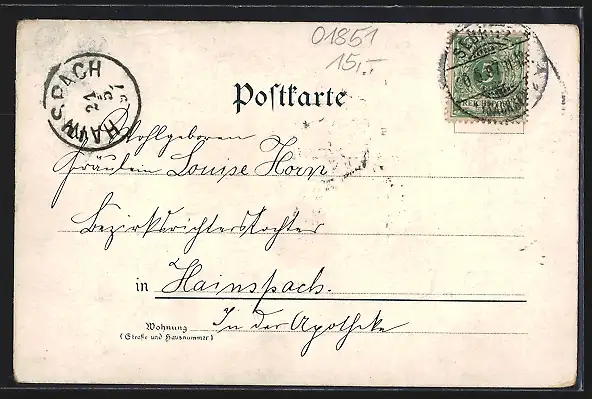 01851
15,-
HAINSPACH
21 5 97
Postkarte
Wohlgeboren
Fräulein Louise Horn
Bezirksrichterstochter
in Hainspach.
Wohnung In der Apotheke
(Straße und Hausnummer)